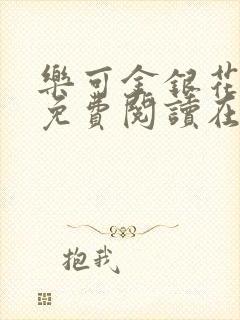 樂可金銀花
免費閱讀在
抱我